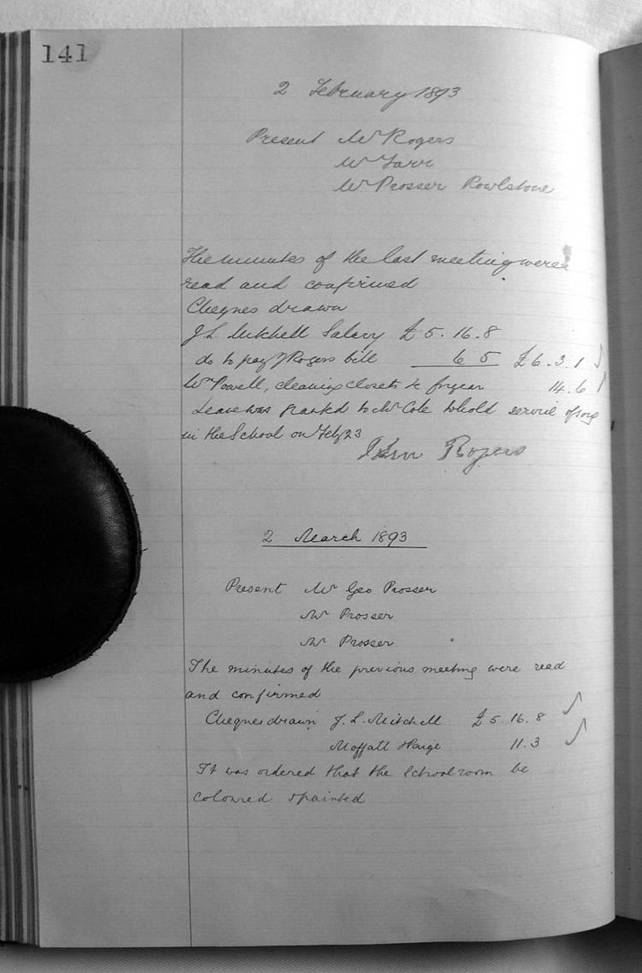 141
2 February 1893
Present Mr Rogers
Mr Farr
Mr Prosser Rowlstone
The minutes of the last meeting were
read and confirmed
Cheques drawn
J L Mitchell Salary £5.16.8
do to pay J Rogers bill 6 5 £6.3.1
Mr Powell, cleaning closets &c for year 14.6
Leave was granted to Mr Cole to hold service of song
in the School on Feby 23
John Rogers
2 March 1893
Present Mr Geo Prosser
Mr Prosser
Mr Prosser
The minutes of the previous meeting were read
and confirmed
Cheques drawn J. L. Mitchell £5.16.8
Moffatt Paige 11.3
It was ordered that the Schoolroom be
coloured & painted